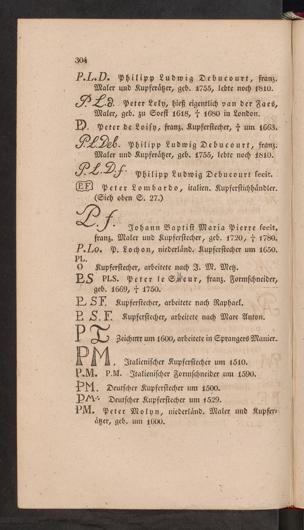 304
P.L.D. Philipp Ludwig Debucourt, franz.
Maler und Kupferätzer, geb. 1755, lebte noch 1810.
P.L.d. Peter Lely, hieß eigentlich van der Faes,
Maler, geb. zu Soest 1618, † 1680 in London.
PD. Peter de Loisy, franz. Kupferstecher, † um 1663.
P.L.Deb. Philipp Ludwig Debucourt, franz.
Maler und Kupferätzer, geb. 1755, lebte noch 1810.
P.L.D.f. Philipp Ludwig Debucourt fecit.
Peter Lombardo, italien. Kupferstichhändler.
(Sieh oben S. 27.)
P.f. Johann Baptist Maria Pierre fecit,
franz. Maler und Kupferstecher, geb. 1720, † 1780.
P.Lo. P. Lochon, niederländ. Kupferstecher um 1650.
PL.
O Kupferstecher, arbeitete nach J. M. Metz.
P.S PLS. Peter le Sueur, franz. Formschneider,
geb. 1669, † 1750.
P. SF. Kupferstecher, arbeitete nach Raphael.
P. S. F. Kupferstecher, arbeitete nach Marc Anton.
P T Zeichner um 1600, arbeitete in Sprangers Manier.
PM. Italienischer Kupferstecher um 1510.
P.M. P.M. Italienischer Formschneider um 1590.
PM. Deutscher Kupferstecher um 1500.
PM. Deutscher Kupferstecher um 1529.
PM. Peter Molyn, niederländ. Maler und Kupfer-
ätzer, geb. um 1600.